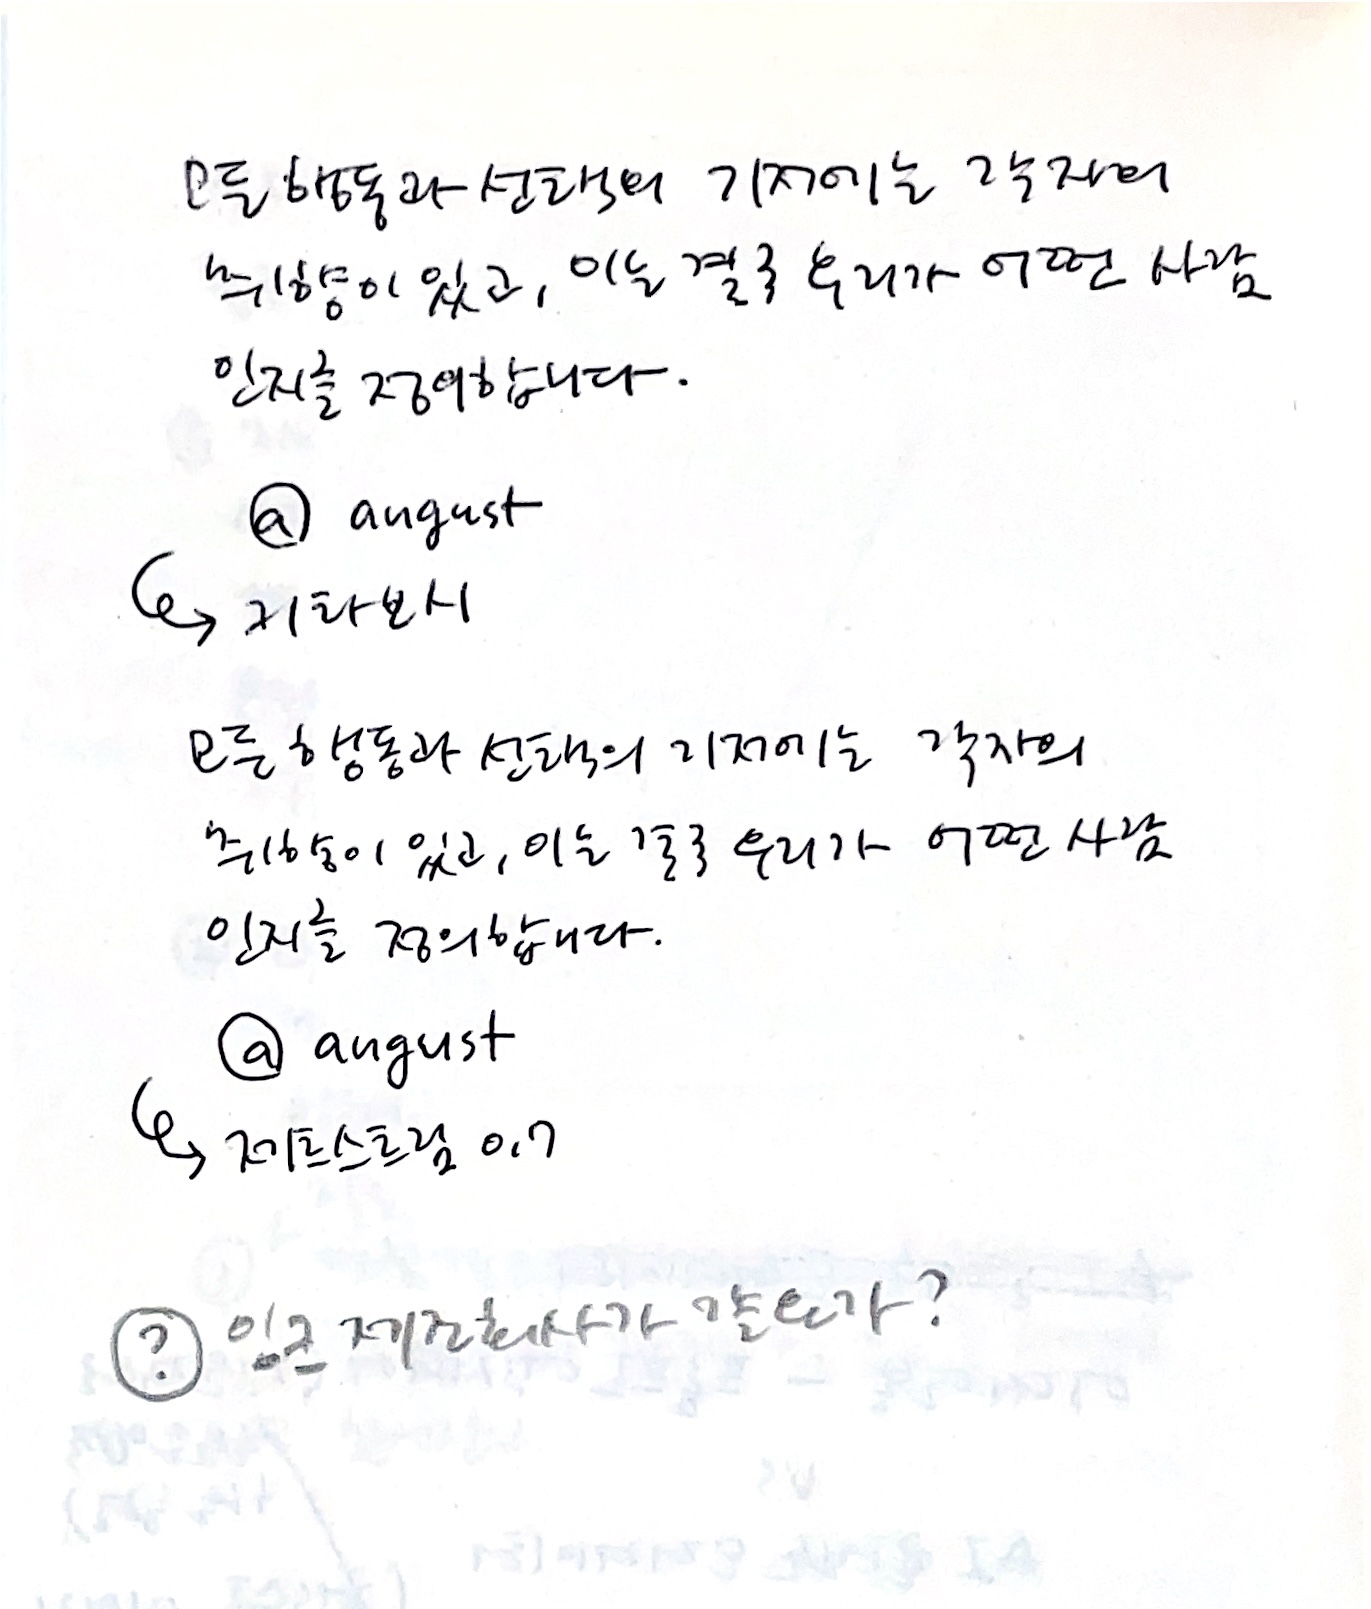 모든 행동과 선택의 기저에는 각자의
취향이 있고, 이는 결국 우리가 어떤 사람
인지를 정의합니다.
@ august
↳ 키타보시
모든 행동과 선택의 기저에는 각자의
취향이 있고, 이는 결국 우리가 어떤 사람
인지를 정의합니다.
@ august
↳ 제트스트림 0.7
? 잉크 제조회사가 같은가?